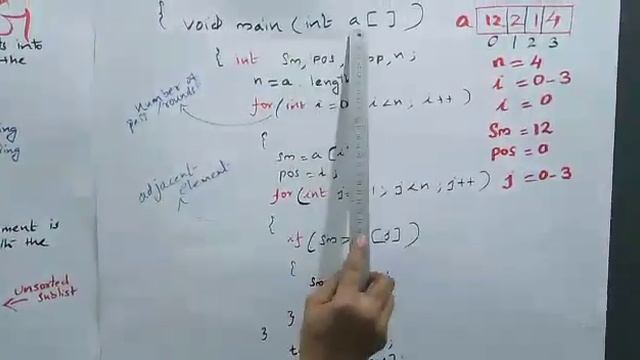 { void main (int a[] )
{ int sm, pos, n;
n = a. length
for (int i = 0 i<n; i++ )
{
sm = a[i
pos = i;
for (int j= 1; j<n; j++ )
{
if ( sm > [j] )
{
sm ;
}
}
number of
pass rounds
adjacent
element
a 12 2 1 4
0 1 2 3
n = 4
i = 0-3
i = 0
sm = 12
pos = 0
j = 0-3
the
ing
ment is
the
unsorted
sublist